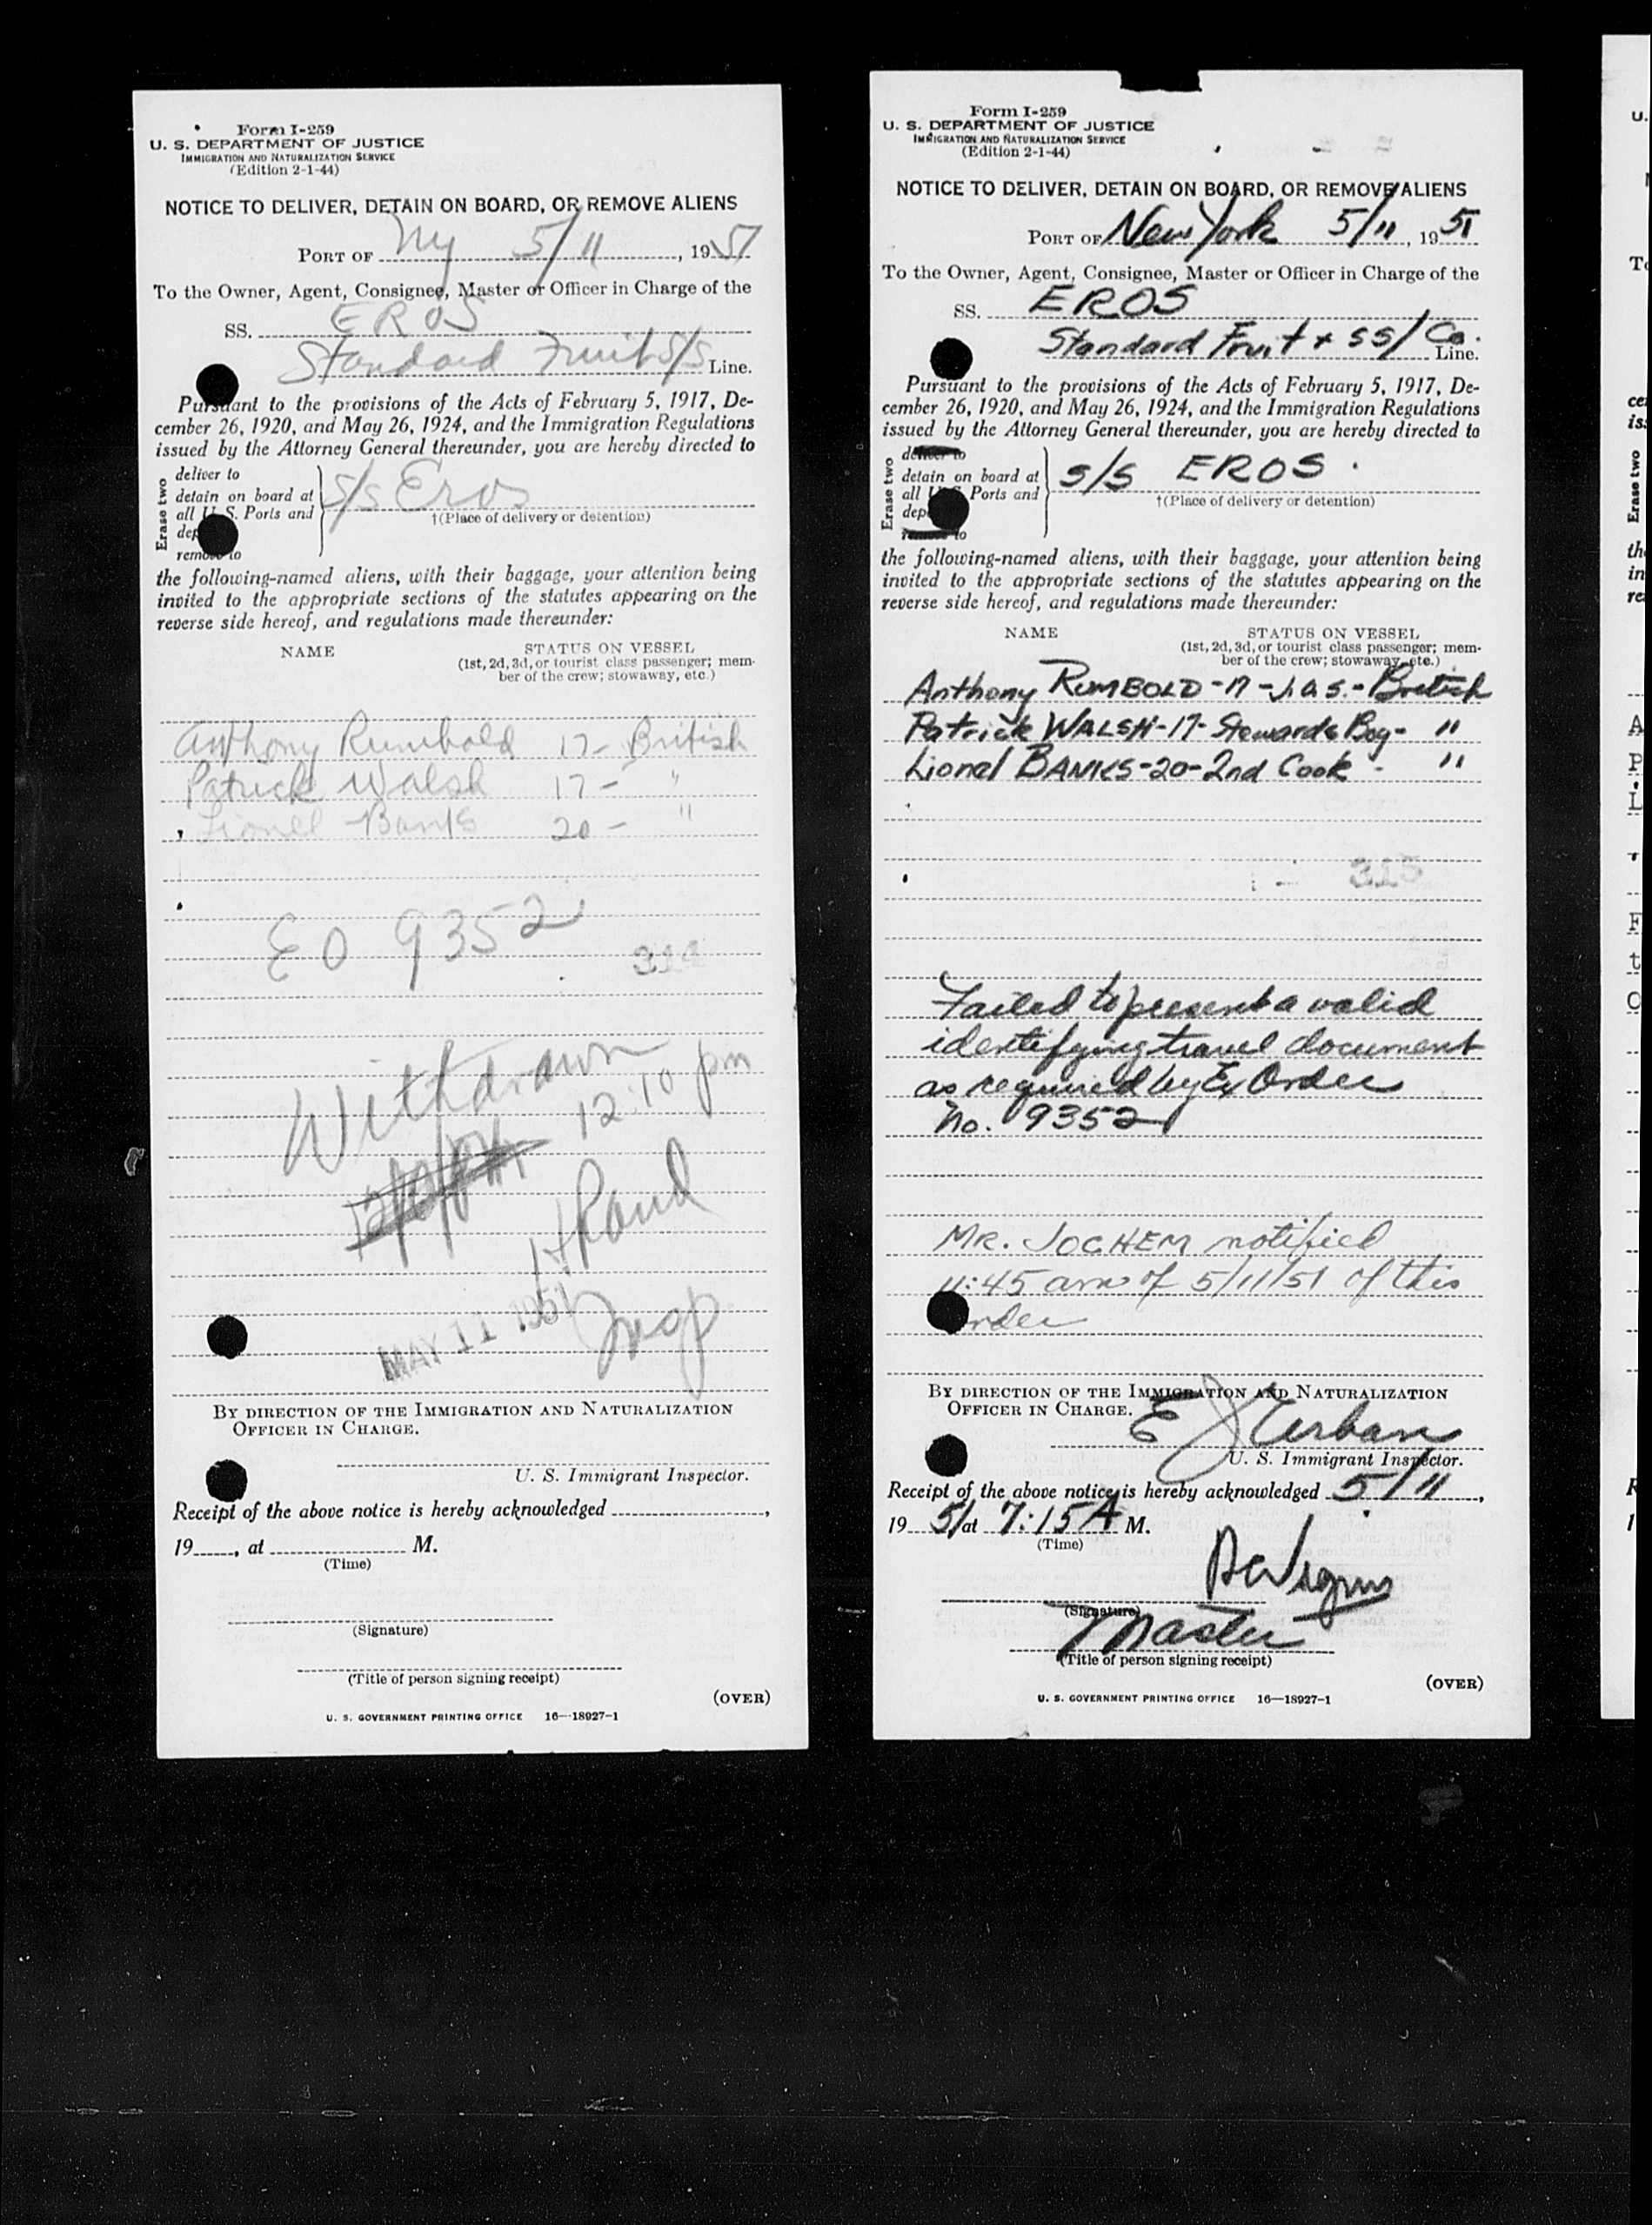 Form I-259
U. S. DEPARTMENT OF JUSTICE
IMMIGRATION AND NATURALIZATION SERVICE
(Edition 2-1-44)
NOTICE TO DELIVER, DETAIN ON BOARD, OR REMOVE ALIENS
PORT OF NY 5/11, 1951
To the Owner, Agent, Consignee, Master or Officer in Charge of the
SS. EROS
Standard Fruit S/S Line.
Pursuant to the provisions of the Acts of February 5, 1917, De-
cember 26, 1920, and May 26, 1924, and the Immigration Regulations
issued by the Attorney General thereunder, you are hereby directed to
Erase two
deliver to
detain on board at
all U. S. Ports and
dep
remove to
S/S Eros
†(Place of delivery or detention)
the following-named aliens, with their baggage, your attention being
invited to the appropriate sections of the statutes appearing on the
reverse side hereof, and regulations made thereunder:
NAME
STATUS ON VESSEL
(1st, 2d, 3d, or tourist class passenger; mem-
ber of the crew; stowaway, etc.)
Anthony Rumbold 17- British
Patrick Walsh 17- "
Lionel Banks 20- "
EO 9352
Withdrawn
12:10 pm
Insp
MAY 11 1951
BY DIRECTION OF THE IMMIGRATION AND NATURALIZATION
OFFICER IN CHARGE.
U. S. Immigrant Inspector.
Receipt of the above notice is hereby acknowledged ,
19 , at M.
(Time)
(Signature)
(Title of person signing receipt)
(OVER)
U. S. GOVERNMENT PRINTING OFFICE 16—18927-1
Form I-259
U. S. DEPARTMENT OF JUSTICE
IMMIGRATION AND NATURALIZATION SERVICE
(Edition 2-1-44)
NOTICE TO DELIVER, DETAIN ON BOARD, OR REMOVE ALIENS
PORT OF New York 5/11, 1951
To the Owner, Agent, Consignee, Master or Officer in Charge of the
SS. EROS
Standard Fruit + SS/ Co. Line.
Pursuant to the provisions of the Acts of February 5, 1917, De-
cember 26, 1920, and May 26, 1924, and the Immigration Regulations
issued by the Attorney General thereunder, you are hereby directed to
Erase two
deliver to
detain on board at
all U.S. Ports and
dep
remove to
S/S EROS.
†(Place of delivery or detention)
the following-named aliens, with their baggage, your attention being
invited to the appropriate sections of the statutes appearing on the
reverse side hereof, and regulations made thereunder:
NAME
STATUS ON VESSEL
(1st, 2d, 3d, or tourist class passenger; mem-
ber of the crew; stowaway, etc.)
Anthony RUMBOLD-17-J.O.S.-British
Patrick WALSH-17-Stewards Boy- "
Lionel BANKS-20-2nd Cook - "
315
Failed to present a valid
identifying travel document
as required by Ex Order
No. 9352
MR. JOCHEM notified
11:45 am of 5/11/51 of this
order
BY DIRECTION OF THE IMMIGRATION AND NATURALIZATION
OFFICER IN CHARGE.
E J Urban
U. S. Immigrant Inspector.
Receipt of the above notice is hereby acknowledged 5/11,
19 51 at 7:15 A M.
(Time)
(Signature)
Master
(Title of person signing receipt)
(OVER)
U. S. GOVERNMENT PRINTING OFFICE 16—18927-1